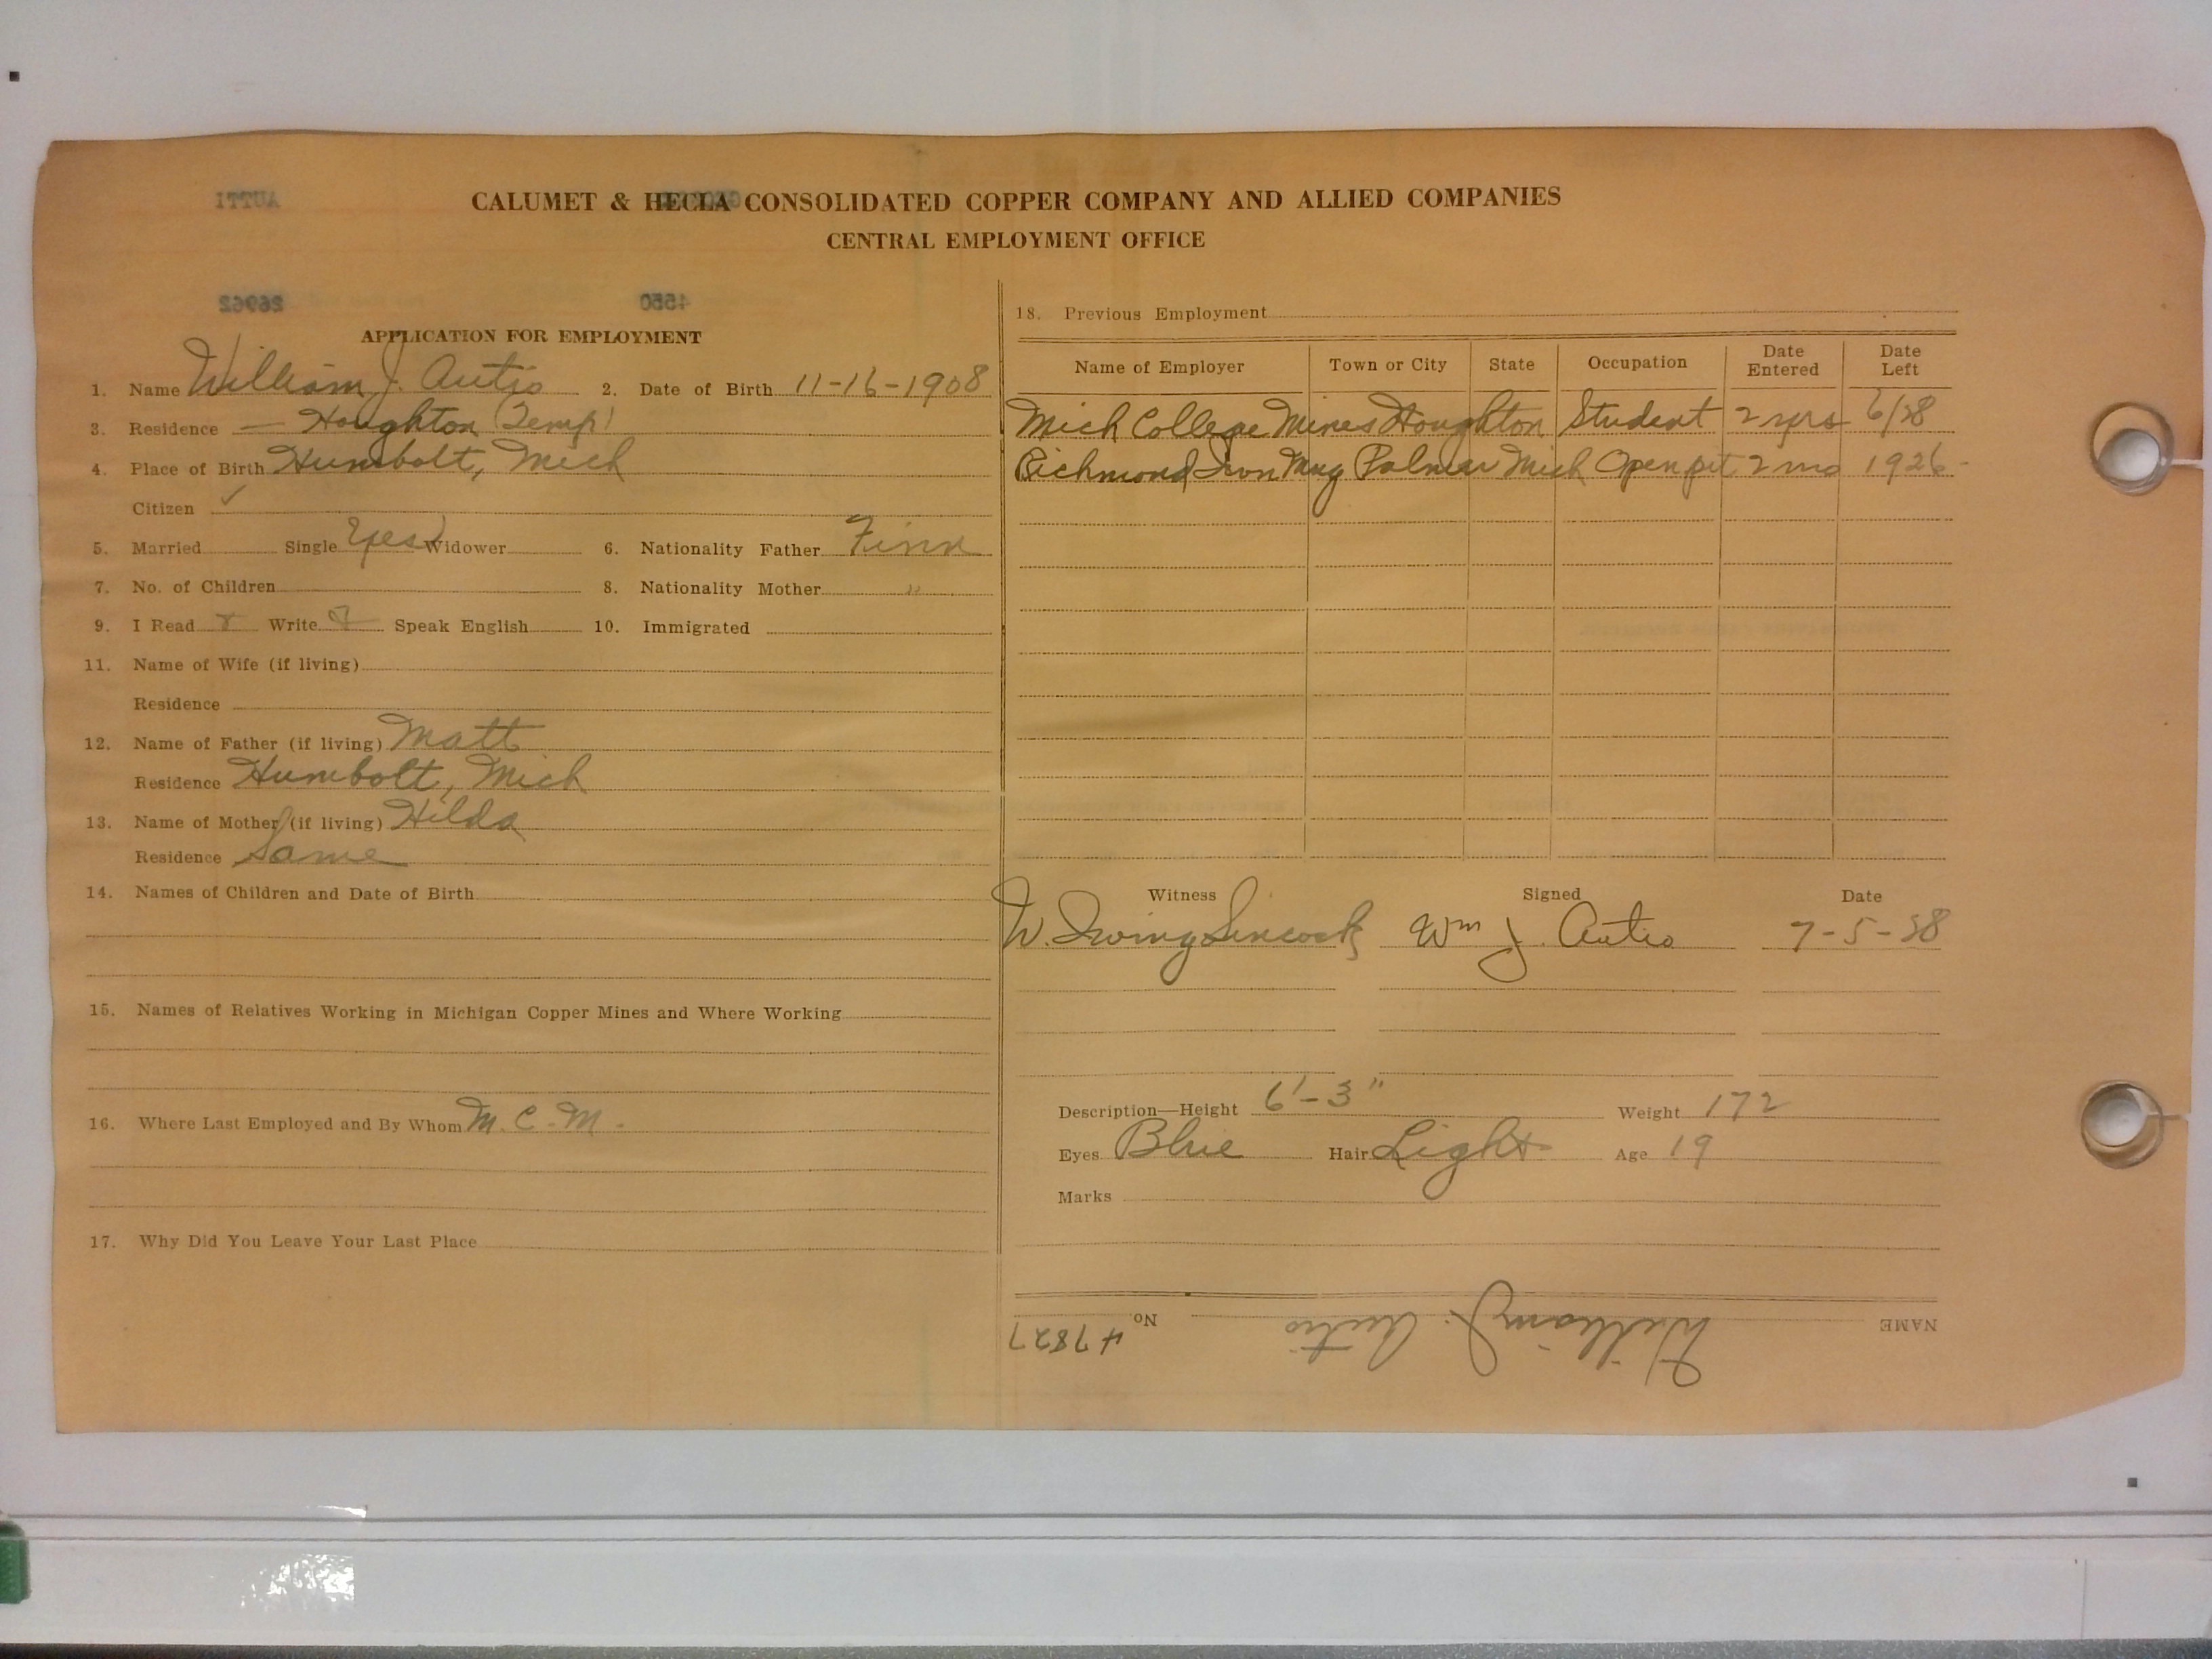 CALUMET & HECLA CONSOLIDATED COPPER COMPANY AND ALLIED COMPANIES
CENTRAL EMPLOYMENT OFFICE
AUTTI
26962 4550
APPLICATION FOR EMPLOYMENT
1. Name William J. Autio 2. Date of Birth 11-16-1908
3. Residence — Houghton (Temp)
4. Place of Birth Humbolt, Mich
Citizen ✓
5. Married Single Yes Widower 6. Nationality Father Finn
7. No. of Children 8. Nationality Mother "
9. I Read Write Speak English 10. Immigrated
11. Name of Wife (if living)
Residence
12. Name of Father (if living) Matt
Residence Humbolt, Mich
13. Name of Mother (if living) Hilda
Residence Same
14. Names of Children and Date of Birth
15. Names of Relatives Working in Michigan Copper Mines and Where Working
16. Where Last Employed and By Whom M.C.M.
17. Why Did You Leave Your Last Place
18. Previous Employment
Name of Employer Town or City State Occupation Date Entered Date Left
Mich College Mines Houghton Student 2 yrs 6/28
Richmond Iron Mng Palmer Mich Open pit 2 mo 1926
Witness Signed Date
W. Irving Sincock Wm J. Autio 7-5-28
Description—Height 6'-3" Weight 172
Eyes Blue Hair Light Age 19
Marks
NAME William J. Autio No. 47827